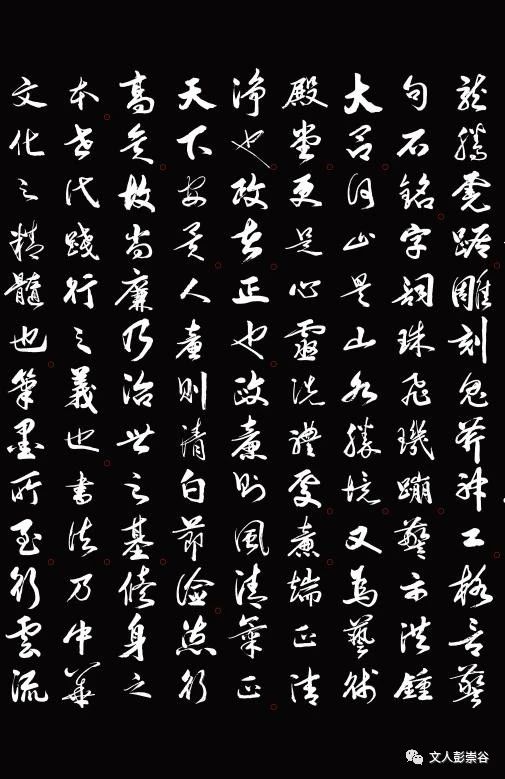 龍騰虎踞雕刻鬼斧神工格言警
句石銘字詞珠飛璣蹦警示洪鐘
大呂山是山水勝境又為藝術
殿堂更是心靈洗禮處廉端正清
淨也政者正也政廉則風清氣正
天下安矣人廉則清白節儉行
高矣故尚廉乃治世之基脩身之
本世代踐行之義也書法乃中華
文化之精髓也筆墨所至行雲流
文人彭崇谷